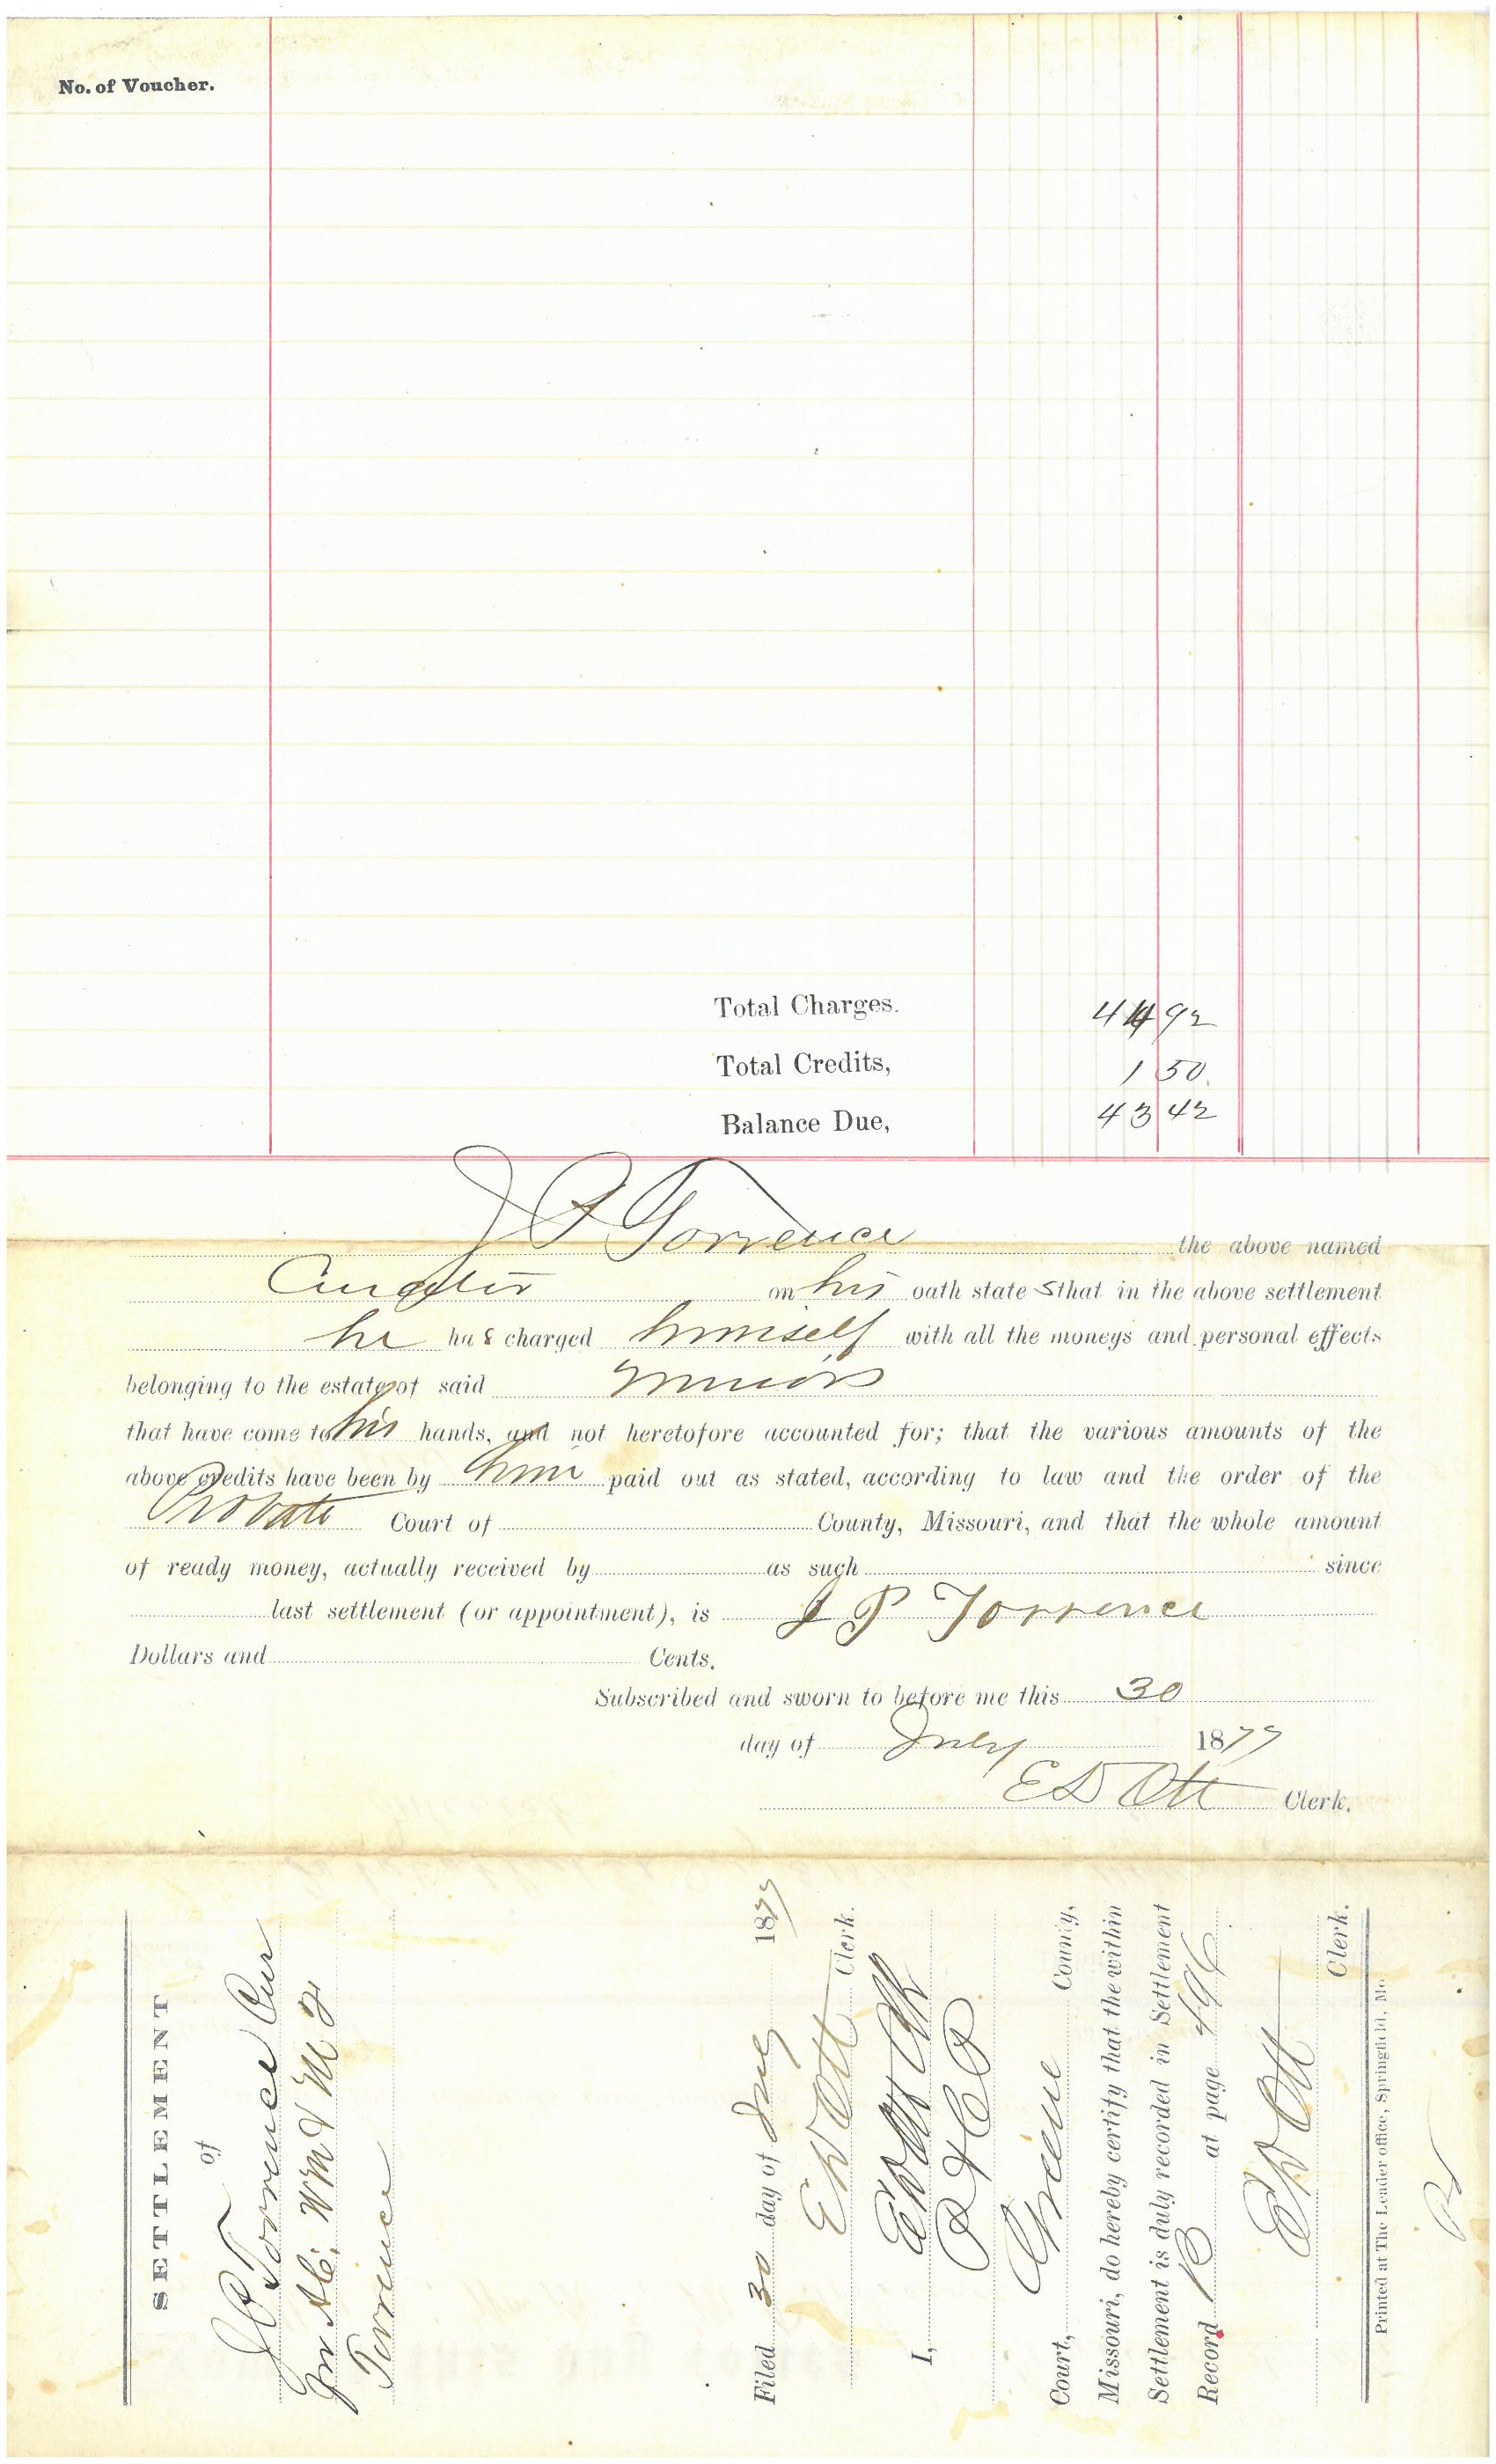 No. of Voucher.
Total Charges. 44 92
Total Credits, 1 50.
Balance Due, 43 42
J P Torrence the above named
Curator on his oath state s that in the above settlement
he has charged himself with all the moneys and personal effects
belonging to the estate of said minors
that have come to his hands, and not heretofore accounted for; that the various amounts of the
above credits have been by him paid out as stated, according to law and the order of the
Probate Court of County, Missouri, and that the whole amount
of ready money, actually received by as such since
last settlement (or appointment), is J P Torrence
Dollars and Cents.
Subscribed and sworn to before me this 30
day of July 1877
E D Ott Clerk.
SETTLEMENT
of
J P Torrence Cur
Wm & M J
Torrence
Filed 30 day of July 1877
E D Ott Clerk.
I, E D Ott Clk
P & C C
Court, Greene County,
Missouri, do hereby certify that the within
Settlement is duly recorded in Settlement
Record B at page 496
E D Ott
Clerk.
Printed at The Leader office, Springfield, Mo.